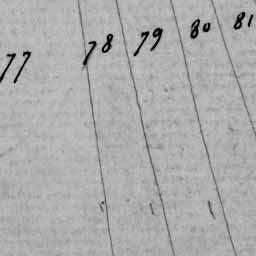 77 78 79 80 81